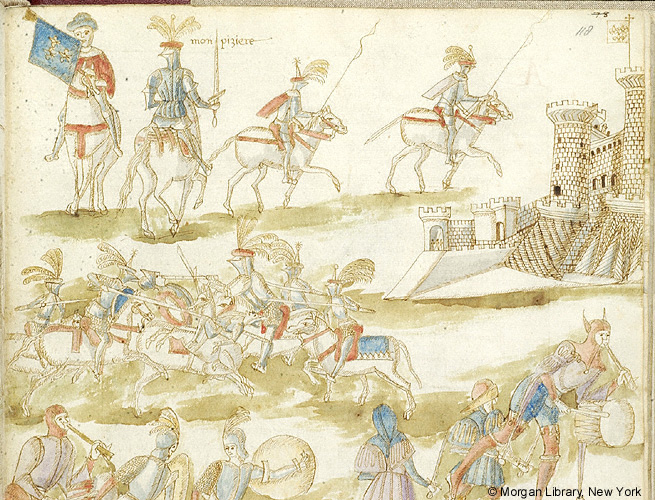 mon piziere
118
© Morgan Library, New York